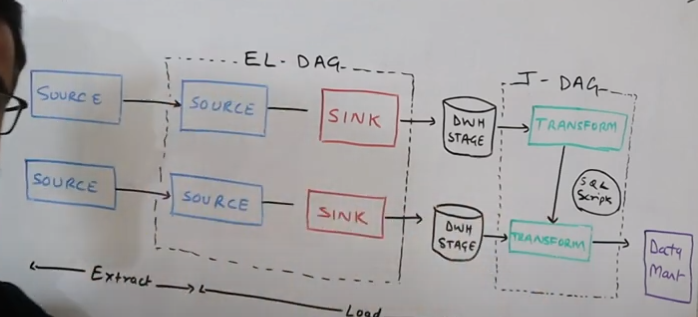 EL-DAG
T-DAG
SOURCE
SOURCE
SINK
DWH
STAGE
TRANSFORM
SQL
Script
SOURCE
SOURCE
SINK
DWH
STAGE
TRANSFORM
Data
Mart
Extract
Load